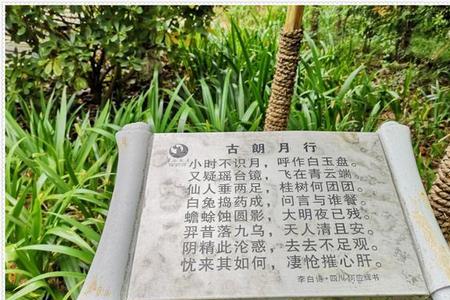 古朗月行
小时不识月，呼作白玉盘。
又疑瑶台镜，飞在青云端。
仙人垂两足，桂树何团团。
白兔捣药成，问言与谁餐。
蟾蜍蚀圆影，大明夜已残。
羿昔落九乌，天人清且安。
阴精此沦惑，去去不足观。
忧来其如何，凄怆摧心肝。
李白诗·四川